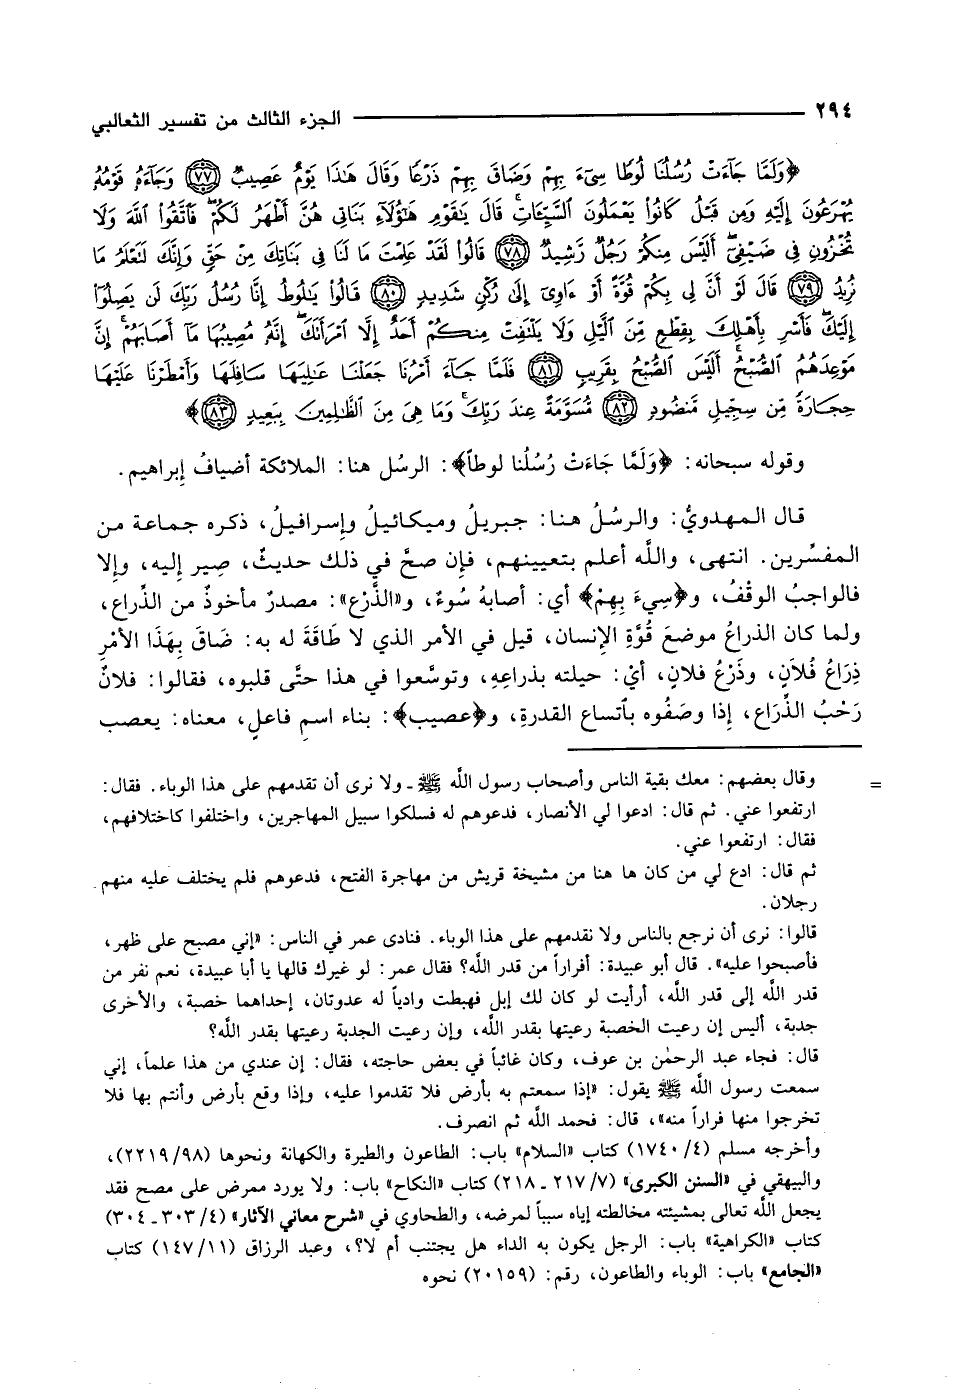 ٢٩٤ الجزء الثالث من تفسير الثعالبي
﴿وَلَمَّا جَآءَتْ رُسُلُنَا لُوطًا سِىٓءَ بِهِمْ وَضَاقَ بِهِمْ ذَرْعًا وَقَالَ هَٰذَا يَوْمٌ عَصِيبٌ ﴿٧٧﴾ وَجَآءَهُۥ قَوْمُهُۥ
يُهْرَعُونَ إِلَيْهِ وَمِن قَبْلُ كَانُوا۟ يَعْمَلُونَ ٱلسَّيِّـَٔاتِ ۚ قَالَ يَٰقَوْمِ هَٰٓؤُلَآءِ بَنَاتِى هُنَّ أَطْهَرُ لَكُمْ ۖ فَٱتَّقُوا۟ ٱللَّهَ وَلَا
تُخْزُونِ فِى ضَيْفِىٓ ۖ أَلَيْسَ مِنكُمْ رَجُلٌ رَّشِيدٌ ﴿٧٨﴾ قَالُوا۟ لَقَدْ عَلِمْتَ مَا لَنَا فِى بَنَاتِكَ مِنْ حَقٍّ وَإِنَّكَ لَتَعْلَمُ مَا
نُرِيدُ ﴿٧٩﴾ قَالَ لَوْ أَنَّ لِى بِكُمْ قُوَّةً أَوْ ءَاوِىٓ إِلَىٰ رُكْنٍ شَدِيدٍ ﴿٨٠﴾ قَالُوا۟ يَٰلُوطُ إِنَّا رُسُلُ رَبِّكَ لَن يَصِلُوٓا۟
إِلَيْكَ ۖ فَأَسْرِ بِأَهْلِكَ بِقِطْعٍ مِّنَ ٱلَّيْلِ وَلَا يَلْتَفِتْ مِنكُمْ أَحَدٌ إِلَّا ٱمْرَأَتَكَ ۖ إِنَّهُۥ مُصِيبُهَا مَآ أَصَابَهُمْ ۚ إِنَّ
مَوْعِدَهُمُ ٱلصُّبْحُ ۚ أَلَيْسَ ٱلصُّبْحُ بِقَرِيبٍ ﴿٨١﴾ فَلَمَّا جَآءَ أَمْرُنَا جَعَلْنَا عَٰلِيَهَا سَافِلَهَا وَأَمْطَرْنَا عَلَيْهَا
حِجَارَةً مِّن سِجِّيلٍ مَّنضُودٍ ﴿٨٢﴾ مُّسَوَّمَةً عِندَ رَبِّكَ ۖ وَمَا هِىَ مِنَ ٱلظَّٰلِمِينَ بِبَعِيدٍ ﴿٨٣﴾﴾
وقوله سبحانه: ﴿وَلَمَّا جَاءَتْ رُسُلُنا لوطاً﴾: الرسُل هنا: الملائكة أضيافُ إبراهيم.
قال المهدويُّ: والرسُلُ هنا: جبريلُ وميكائيلُ وإسرافيلُ، ذكره جماعة من
المفسِّرين. انتهى، واللَّه أعلم بتعيينهم، فإن صحَّ في ذلك حديثٌ، صِير إليه، وإلا
فالواجبُ الوقْفُ، و﴿سِيءَ بِهِمْ﴾ أي: أصابهُ سُوءٌ، و«الذَّرْع»: مصدرٌ مأخوذٌ من الذِّراع،
ولما كان الذراعُ موضعَ قُوَّةِ الإنسان، قيل في الأمر الذي لا طَاقَةَ له به: ضَاقَ بِهَذَا الأَمْرِ
ذِرَاعُ فُلاَنٍ، وذَرْعُ فلانٍ، أيْ: حيلته بذراعِهِ، وتوسَّعوا في هذا حتَّى قلبوه، فقالوا: فلانٌ
رَحْبُ الذِّرَاعِ، إذا وصَفُوه بأتساع القدرةِ، و﴿عصيب﴾: بناء اسمِ فاعلٍ، معناه: يعصب
= وقال بعضهم: معك بقية الناس وأصحاب رسول اللَّه ﷺ ـ ولا نرى أن تقدمهم على هذا الوباء. فقال:
ارتفعوا عني. ثم قال: ادعوا لي الأنصار، فدعوهم له فسلكوا سبيل المهاجرين، واختلفوا كاختلافهم،
فقال: ارتفعوا عني.
ثم قال: ادع لي من كان ها هنا من مشيخة قريش من مهاجرة الفتح، فدعوهم فلم يختلف عليه منهم
رجلان.
قالوا: نرى أن نرجع بالناس ولا نقدمهم على هذا الوباء. فنادى عمر في الناس: «إني مصبح على ظهر،
فأصبحوا عليه». قال أبو عبيدة: أفراراً من قدر اللَّه؟ فقال عمر: لو غيرك قالها يا أبا عبيدة، نعم نفر من
قدر اللَّه إلى قدر اللَّه، أرأيت لو كان لك إبل فهبطت وادياً له عدوتان، إحداهما خصبة، والأخرى
جدبة، أليس إن رعيت الخصبة رعيتها بقدر اللَّه، وإن رعيت الجدبة رعيتها بقدر اللَّه؟
قال: فجاء عبد الرحمٰن بن عوف، وكان غائباً في بعض حاجته، فقال: إن عندي من هذا علماً، إني
سمعت رسول اللَّه ﷺ يقول: «إذا سمعتم به بأرض فلا تقدموا عليه، وإذا وقع بأرض وأنتم بها فلا
تخرجوا منها فراراً منه»، قال: فحمد اللَّه ثم انصرف.
وأخرجه مسلم (٤/ ١٧٤٠) كتاب «السلام» باب: الطاعون والطيرة والكهانة ونحوها (٩٨/ ٢٢١٩)،
والبيهقي في «السنن الكبرى» (٧/ ٢١٧ ـ ٢١٨) كتاب «النكاح» باب: ولا يورد ممرض على مصح فقد
يجعل اللَّه تعالى بمشيئته مخالطته إياه سبباً لمرضه، والطحاوي في «شرح معاني الآثار» (٤/ ٣٠٣ ـ ٣٠٤)
كتاب «الكراهية» باب: الرجل يكون به الداء هل يجتنب أم لا؟، وعبد الرزاق (١١/ ١٤٧) كتاب
«الجامع» باب: الوباء والطاعون، رقم: (٢٠١٥٩) نحوه